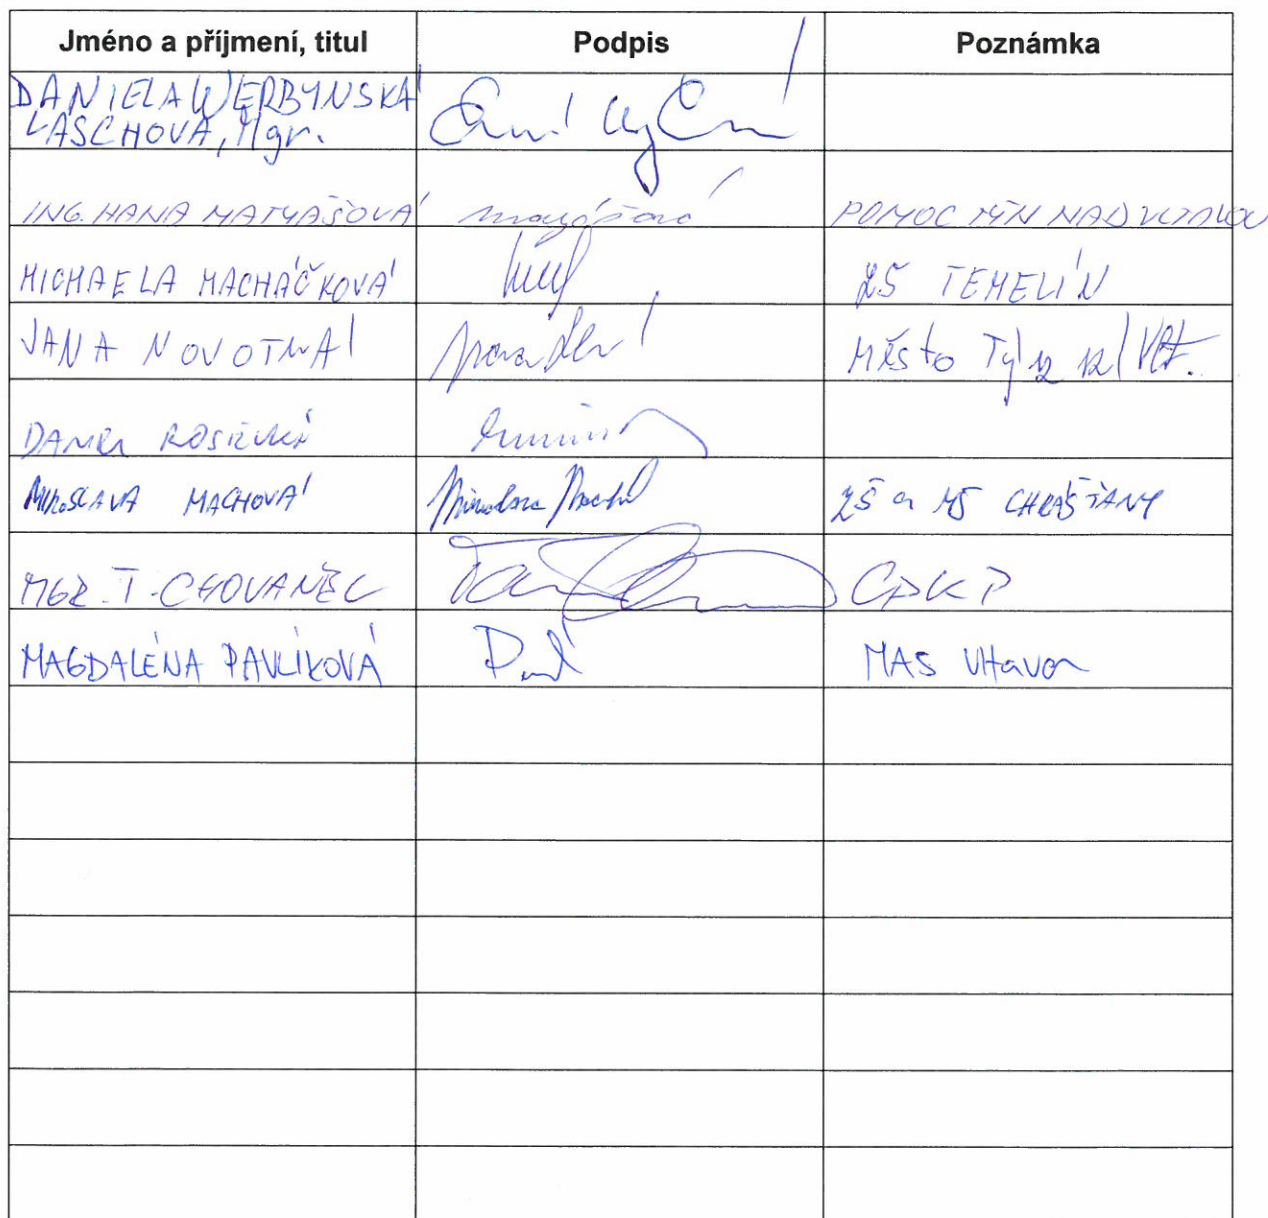 Jméno a příjmení, titul Podpis Poznámka
DANIELA WERBYNSKÁ
LASCHOVÁ, Mgr.
ING. HANA MATYÁŠOVÁ POMOC TÝN NAD VLTAVOU
MICHAELA MACHÁČKOVÁ ZŠ TEMELÍN
JANA NOVOTNÁ MĚSTO Týn n/Vlt.
MIROSLAVA MACHOVÁ ZŠ a MŠ CHRÁŠŤANY
MGR. T. CHOVANEC CPKP
MAGDALÉNA PAVLÍKOVÁ MAS Vltava